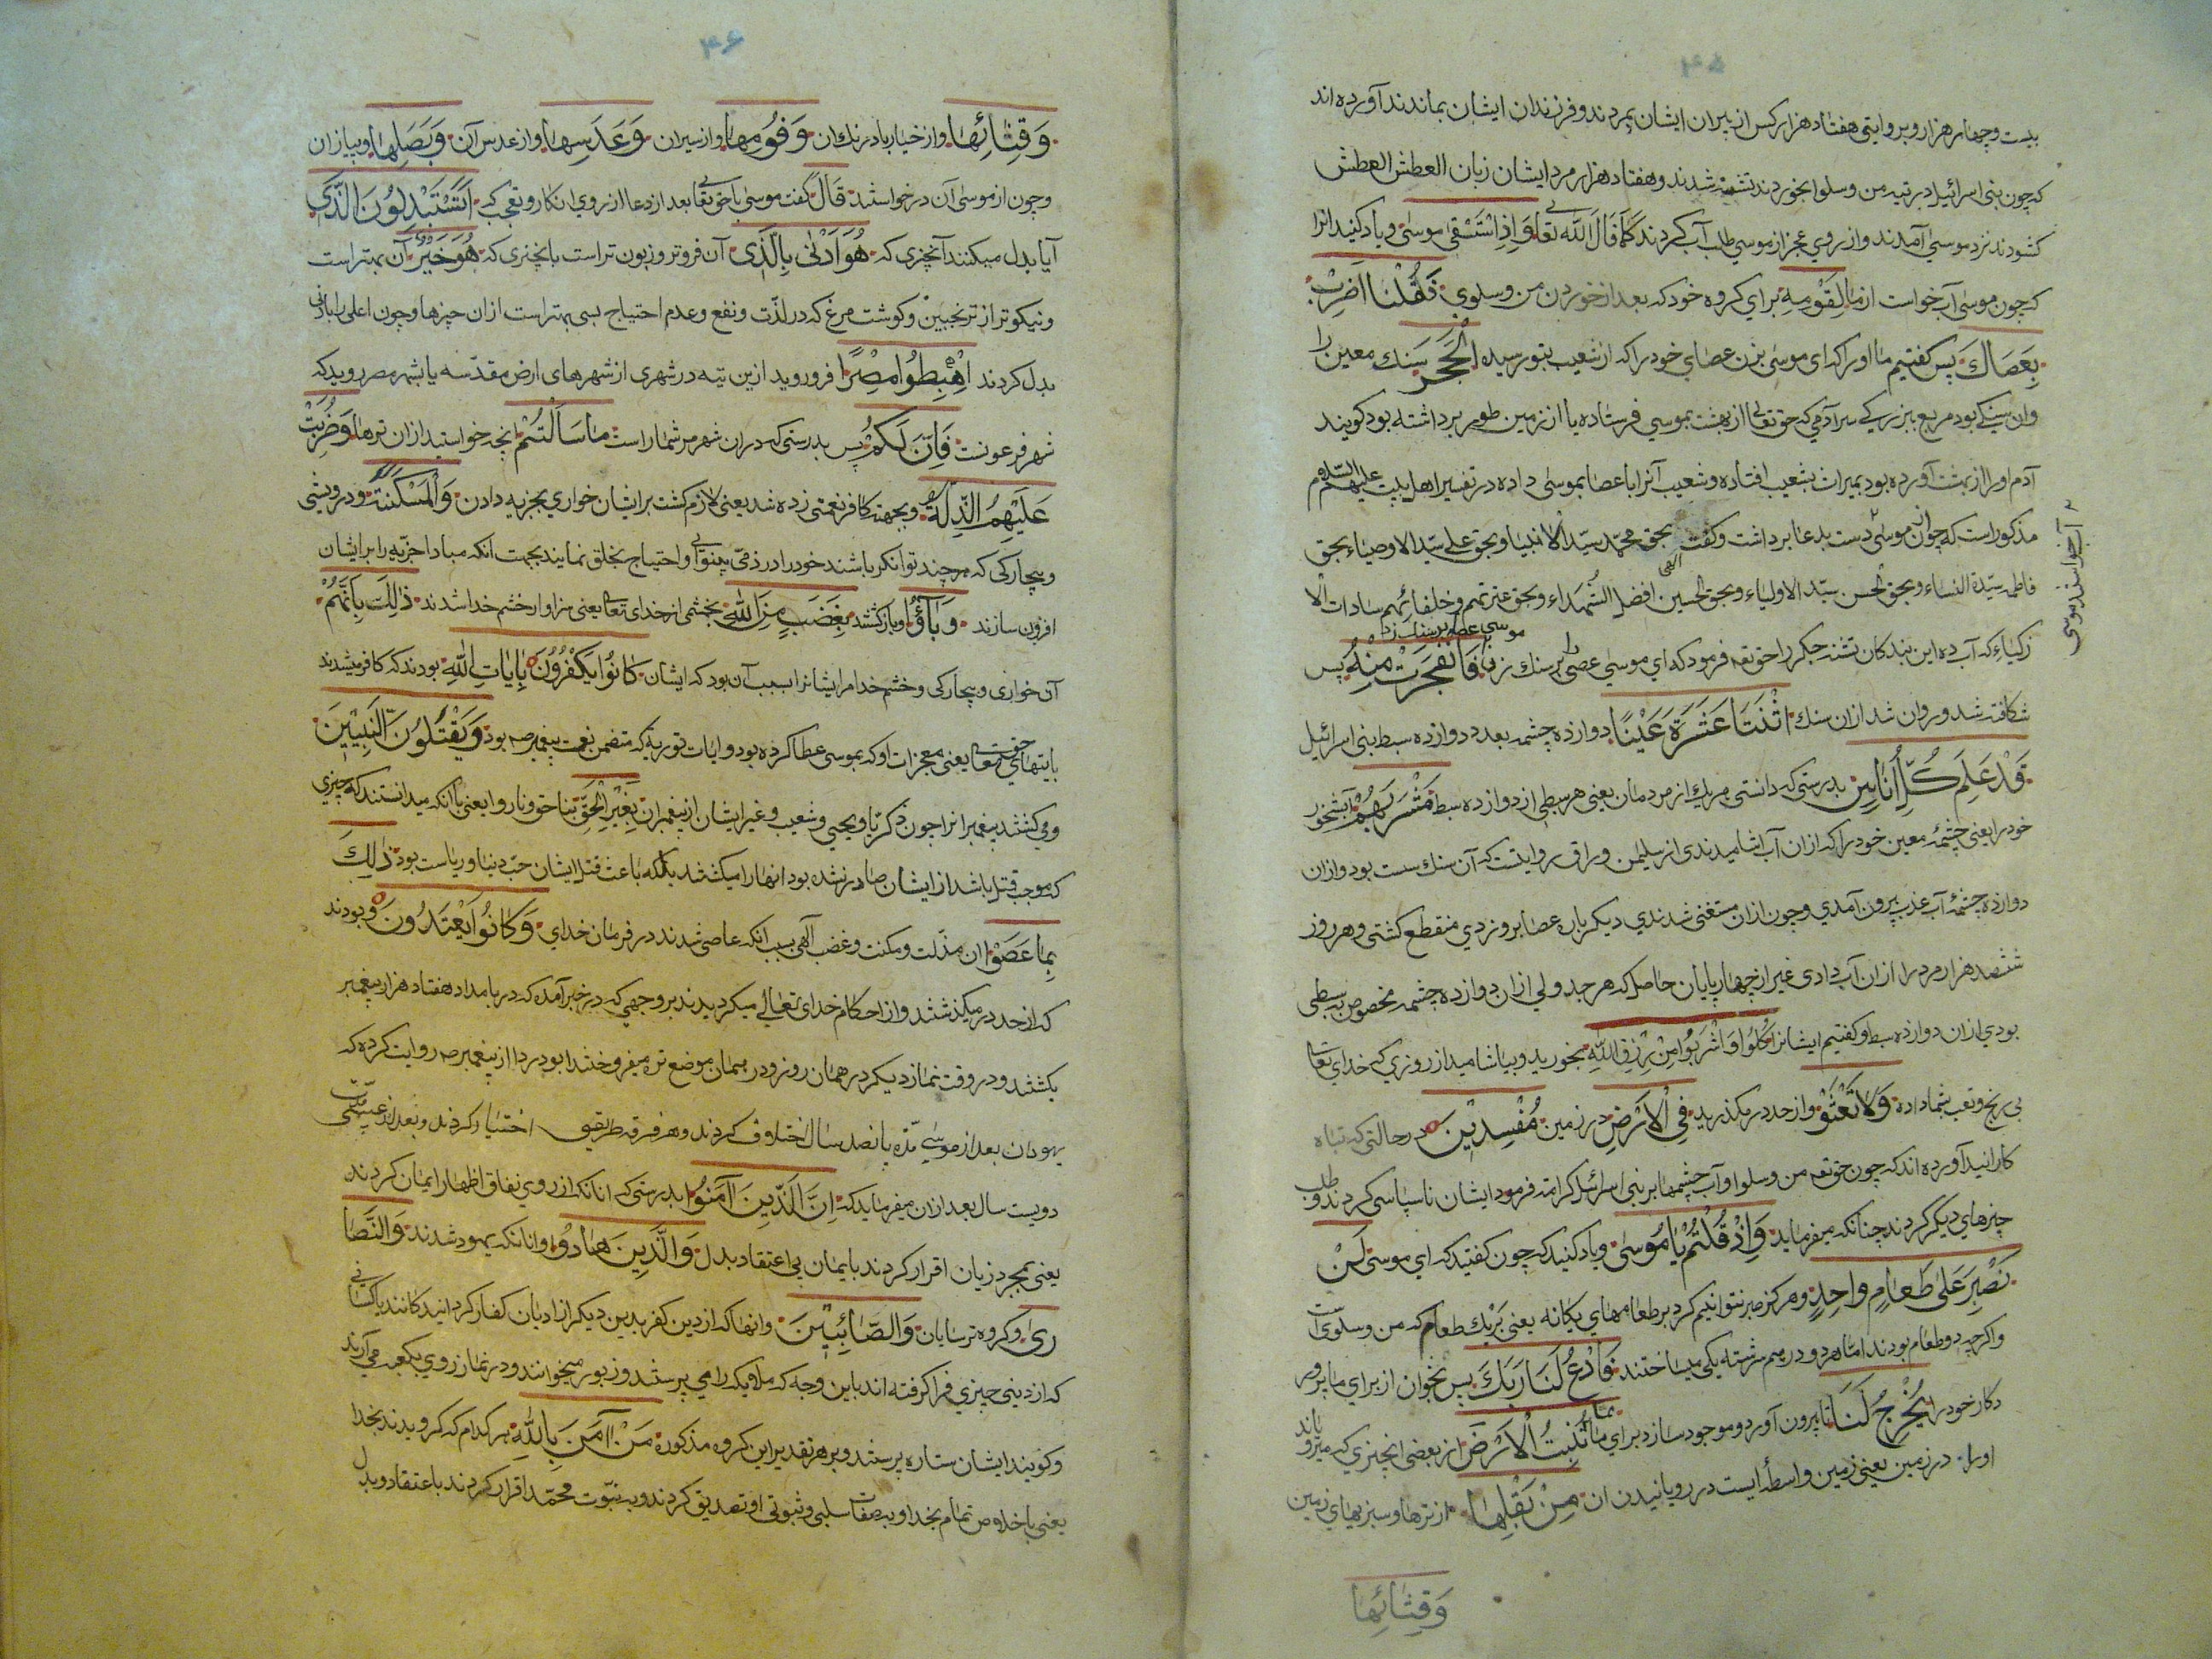 ۴۵
بیست وچهار هزار وبروایتی هفتاد هزار کس از پیران ایشان بمردند وفرزندان ایشان بماندند آورده اند
که چون بنی اسرائیل در تیه من وسلوا بخوردند تشنه شدند وهفتاد هزار مرد ایشان زبان العطش العطش
کشودند نزد موسی آمدند واز روی عجز از موسی طلب آب کردند کما قال الله تعالی وَاِذِ اسْتَسْقٰی موسٰی ویاد کنید انرا
که چون موسی آب خواست از ما لِقَوْمِهِ برای کروه خود که بعد از خوردن من وسلوی فَقُلْنَا اضْرِبْ
بِعَصَاكَ پس کفتیم ما او را که ای موسی بزن عصای خود را که از شعیب بتو رسیده الْحَجَرَ سنك معین را
وان سنکی بود مربع ببزرکی سر آدمی که حق تعالی از بهشت بموسی فرستاده یا از زمین طور برداشته بود کویند
آدم او را از بهشت آورده بود بمیراث بشعیب افتاده وشعیب آنرا با عصا بموسی داده در تفسیر اهل بیت علیهم السلام
مذکور است که چون موسی دست بدعا برداشت وکفت الهی بحق محمد سید الانبیاء وبحق علی سید الاوصیاء بحق
فاطمه سیدة النساء وبحق الحسن سید الاولیاء وبحق الحسین افضل الشهداء وبحق عترتهم وخلفائهم سادات الا
زکیاء که آب ده این بندکان تشنه جکر را حق تعه فرمود که ای موسی عصی را بر سنك زن فَانْفَجَرَتْ مِنْهُ پس
موسی عصا بر سنك زد
شکافته شد وروان شد ازان سنك اثْنَتَا عَشَرَةَ عَیْنًا دوازده چشمه بعدد دوازده سبط بنی اسرائیل
قَدْ عَلِمَ كُلُّ اُنَاسٍ بدرستی که دانستی هر یك از مردمان یعنی هر سبطی از دوازده سبط مَشْرَبَهُمْ آبشخور
خود را یعنی چشمهٔ معین خود را که ازان آب اشامیدندی از سلیمن وراق روایتست که آن سنك سست بود وازان
دوازده چشمهٔ آب عذب بیرون آمدی وچون ازان مستغنی شدندی دیکر باره عصا برو زدی منقطع کشتی وهر روز
ششصد هزار مرد را ازان آب دادی غیر از چهار پایان حاصل که هر جدولی ازان دوازده چشمه مخصوص بسبطی
بودی ازان دوازده سبط وکفتیم ایشانرا كُلُوا وَاشْرَبُوا مِنْ رِزْقِ اللّٰهِ بخورید وبیاشامید از روزی که خدای تعالی
بی رنج وتعب بشما داده وَلَا تَعْثَوْا واز حد در مکذرید فِی الْاَرْضِ در زمین مُفْسِدِینَ در حالتی که تباه
کارانید آورده اند که چون حق تعه من وسلوا وآب چشمها بر بنی اسرائیل کرامت فرمود ایشان ناسپاسی کردند وطلب
چیزهای دیگر کردند چنانکه میفرماید وَاِذْ قُلْتُمْ یَا مُوسٰی ویاد کنید که چون کفتید که ای موسی لَنْ
نَصْبِرَ عَلٰی طَعَامٍ وَاحِدٍ وهرکز صبر نتوانیم کرد بر طعامهای یکانه یعنی بر یك طعام که من وسلوی است
واکرچه دو طعام بودند اما هر دو درهم سرشته یکی میساختند فَادْعُ لَنَا رَبَّكَ پس بخوان از برای ما پرور
دکار خود را یُخْرِجْ لَنَا تا بیرون آورد وموجود سازد برای ما مِمَّا تُنْبِتُ الْاَرْضُ از بعضی انچیزی که میرویاند
اورا در زمین یعنی زمین واسطهٔ ایست در رویانیدن ان مِنْ بَقْلِهَا از ترها وسبزیهای زمین
وَقِثَّائِهَا
۴۶
وَقِثَّائِهَا واز خیار بادرنك ان وَفُومِهَا واز سیر ان وَعَدَسِهَا واز عدس آن وَبَصَلِهَا وپیاز ان
وچون از موسی آن درخواستند قَالَ کفت موسی یا حق تعالی بعد از دعا از روی انکار وتعجب که اَتَسْتَبْدِلُونَ الَّذِی
آیا بدل میکنند آنچیزی که هُوَ اَدْنٰی بِالَّذِی آن فروتر وزبون تر است بانچیزی که هُوَ خَیْرٌ آن بهتر است
ونیکوتر از ترنجبین وکوشت مرغ که در لذت ونفع وعدم احتیاج بسی بهتر است ازان چیزها وچون اعلی را بادنی
بدل کردند اِهْبِطُوا مِصْرًا فرو روید ازین تیه در شهری از شهرهای ارض مقدسه یا بشهر مصر روید که
شهر فرعونست فَاِنَّ لَكُمْ پس بدرستی که دران شهر مر شمار است مَا سَاَلْتُمْ انچه خواستید ازان ترها وَضُرِبَتْ
عَلَیْهِمُ الذِّلَّةُ وبجهت کافر نعمتی زده شد یعنی لازم کشت بر ایشان خواری بجزیه دادن وَالْمَسْكَنَةُ ودرویشی
وبیچارکی که هر چند توانکر باشند خود را در ذی بینوائی واحتیاج بخلق نمایند بجهت انکه مبادا جزیه را بر ایشان
افزون سازند وَبَاؤُا وبازکشتند بِغَضَبٍ مِنَ اللّٰهِ بخشمی از خدای تعالی یعنی سزاوار خشم خدا شدند ذٰلِكَ بِاَنَّهُمْ
آن خواری وبیچارکی وخشم خدا مر ایشانرا بسبب آن بود که ایشان كَانُوا یَكْفُرُونَ بِاٰیَاتِ اللّٰهِ بودند که کافر میشدند
بایتهای حق تعالی یعنی معجزات او که بموسی عطا کرده بود وایات توریة که متضمن نعت پیغمبر صه بود وَیَقْتُلُونَ النَّبِیِّینَ
ومی کشتند پیغمبرانرا چون ذکریا ویحیی وشعیب وغیر ایشان از پیغمبران بِغَیْرِ الْحَقِّ بناحق وناروا یعنی با انکه میدانستند که چیزی
که موجب قتل باشد از ایشان صادر نشده بود انها را میکشتند بلکه باعث قتل ایشان حب دنیا وریاست بود ذٰلِكَ
بِمَا عَصَوْا ان مذلت ومسکنت وغضب الهی بسبب انکه عاصی شدند در فرمان خدای وَكَانُوا یَعْتَدُونَ وبودند
که از حد در میکذشتند واز احکام خدای تعالی میکردیدند بر وجهی که در خبر آمده که در بامداد هفتاد هزار پیغمبر
بکشتند ودر وقت نماز دیکر در همان روز ودر همان موضع تره میفروختند ابو دردا از پیغمبر صه روایت کرده که
یهودان بعد از موسی مدّه پانصد سال اختلاف کردند وهر فرقه طریقی اختیار کردند وبعد از عیسی
دویست سال بعد ازان میفرماید که اِنَّ الَّذِینَ اٰمَنُوا بدرستی که انانکه از روی نفاق اظهار ایمان کردند
یعنی بمجرد زبان اقرار کردند بایمان بی اعتقاد بدل وَالَّذِینَ هَادُوا وانانکه یهود شدند وَالنَّصَا
رٰی وکروه ترسایان وَالصَّابِئِینَ وانها که از دین کفر بدین دیکر از ادیان کفار کردانیدکانند یا کسانی
که از دینی چیزی فرا کرفته اند باین وجه که ملایکه را می پرستند وزبور میخوانند ودر نماز روی بکعبه می آرند
وکویند ایشان ستاره پرستند وبر هر تقدیر این کروه مذکوره مَنْ اٰمَنَ بِاللّٰهِ هر کدام که کرویدند بخدا
یعنی باخلاص تمام بخدا وبصفات سلبی وثبوتی او تصدیق کردند وبه نبوت محمد اقرار کردند باعتقاد وبدل